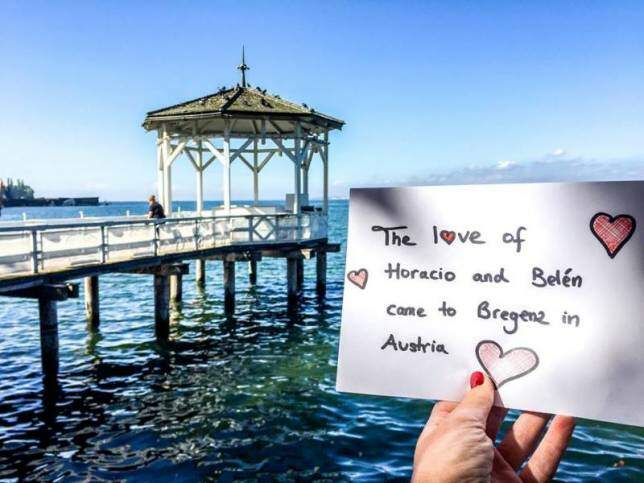 The love of
Horacio and Belén
came to Bregenz in
Austria